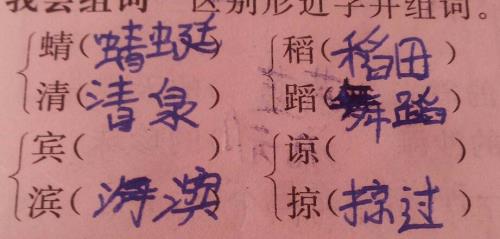 我会组词 区别形近字并组词。
蜻(蜻蜓) 稻(稻田)
清(清泉) 蹈(舞蹈)
宾( ) 谅( )
滨(海滨) 掠(掠过)